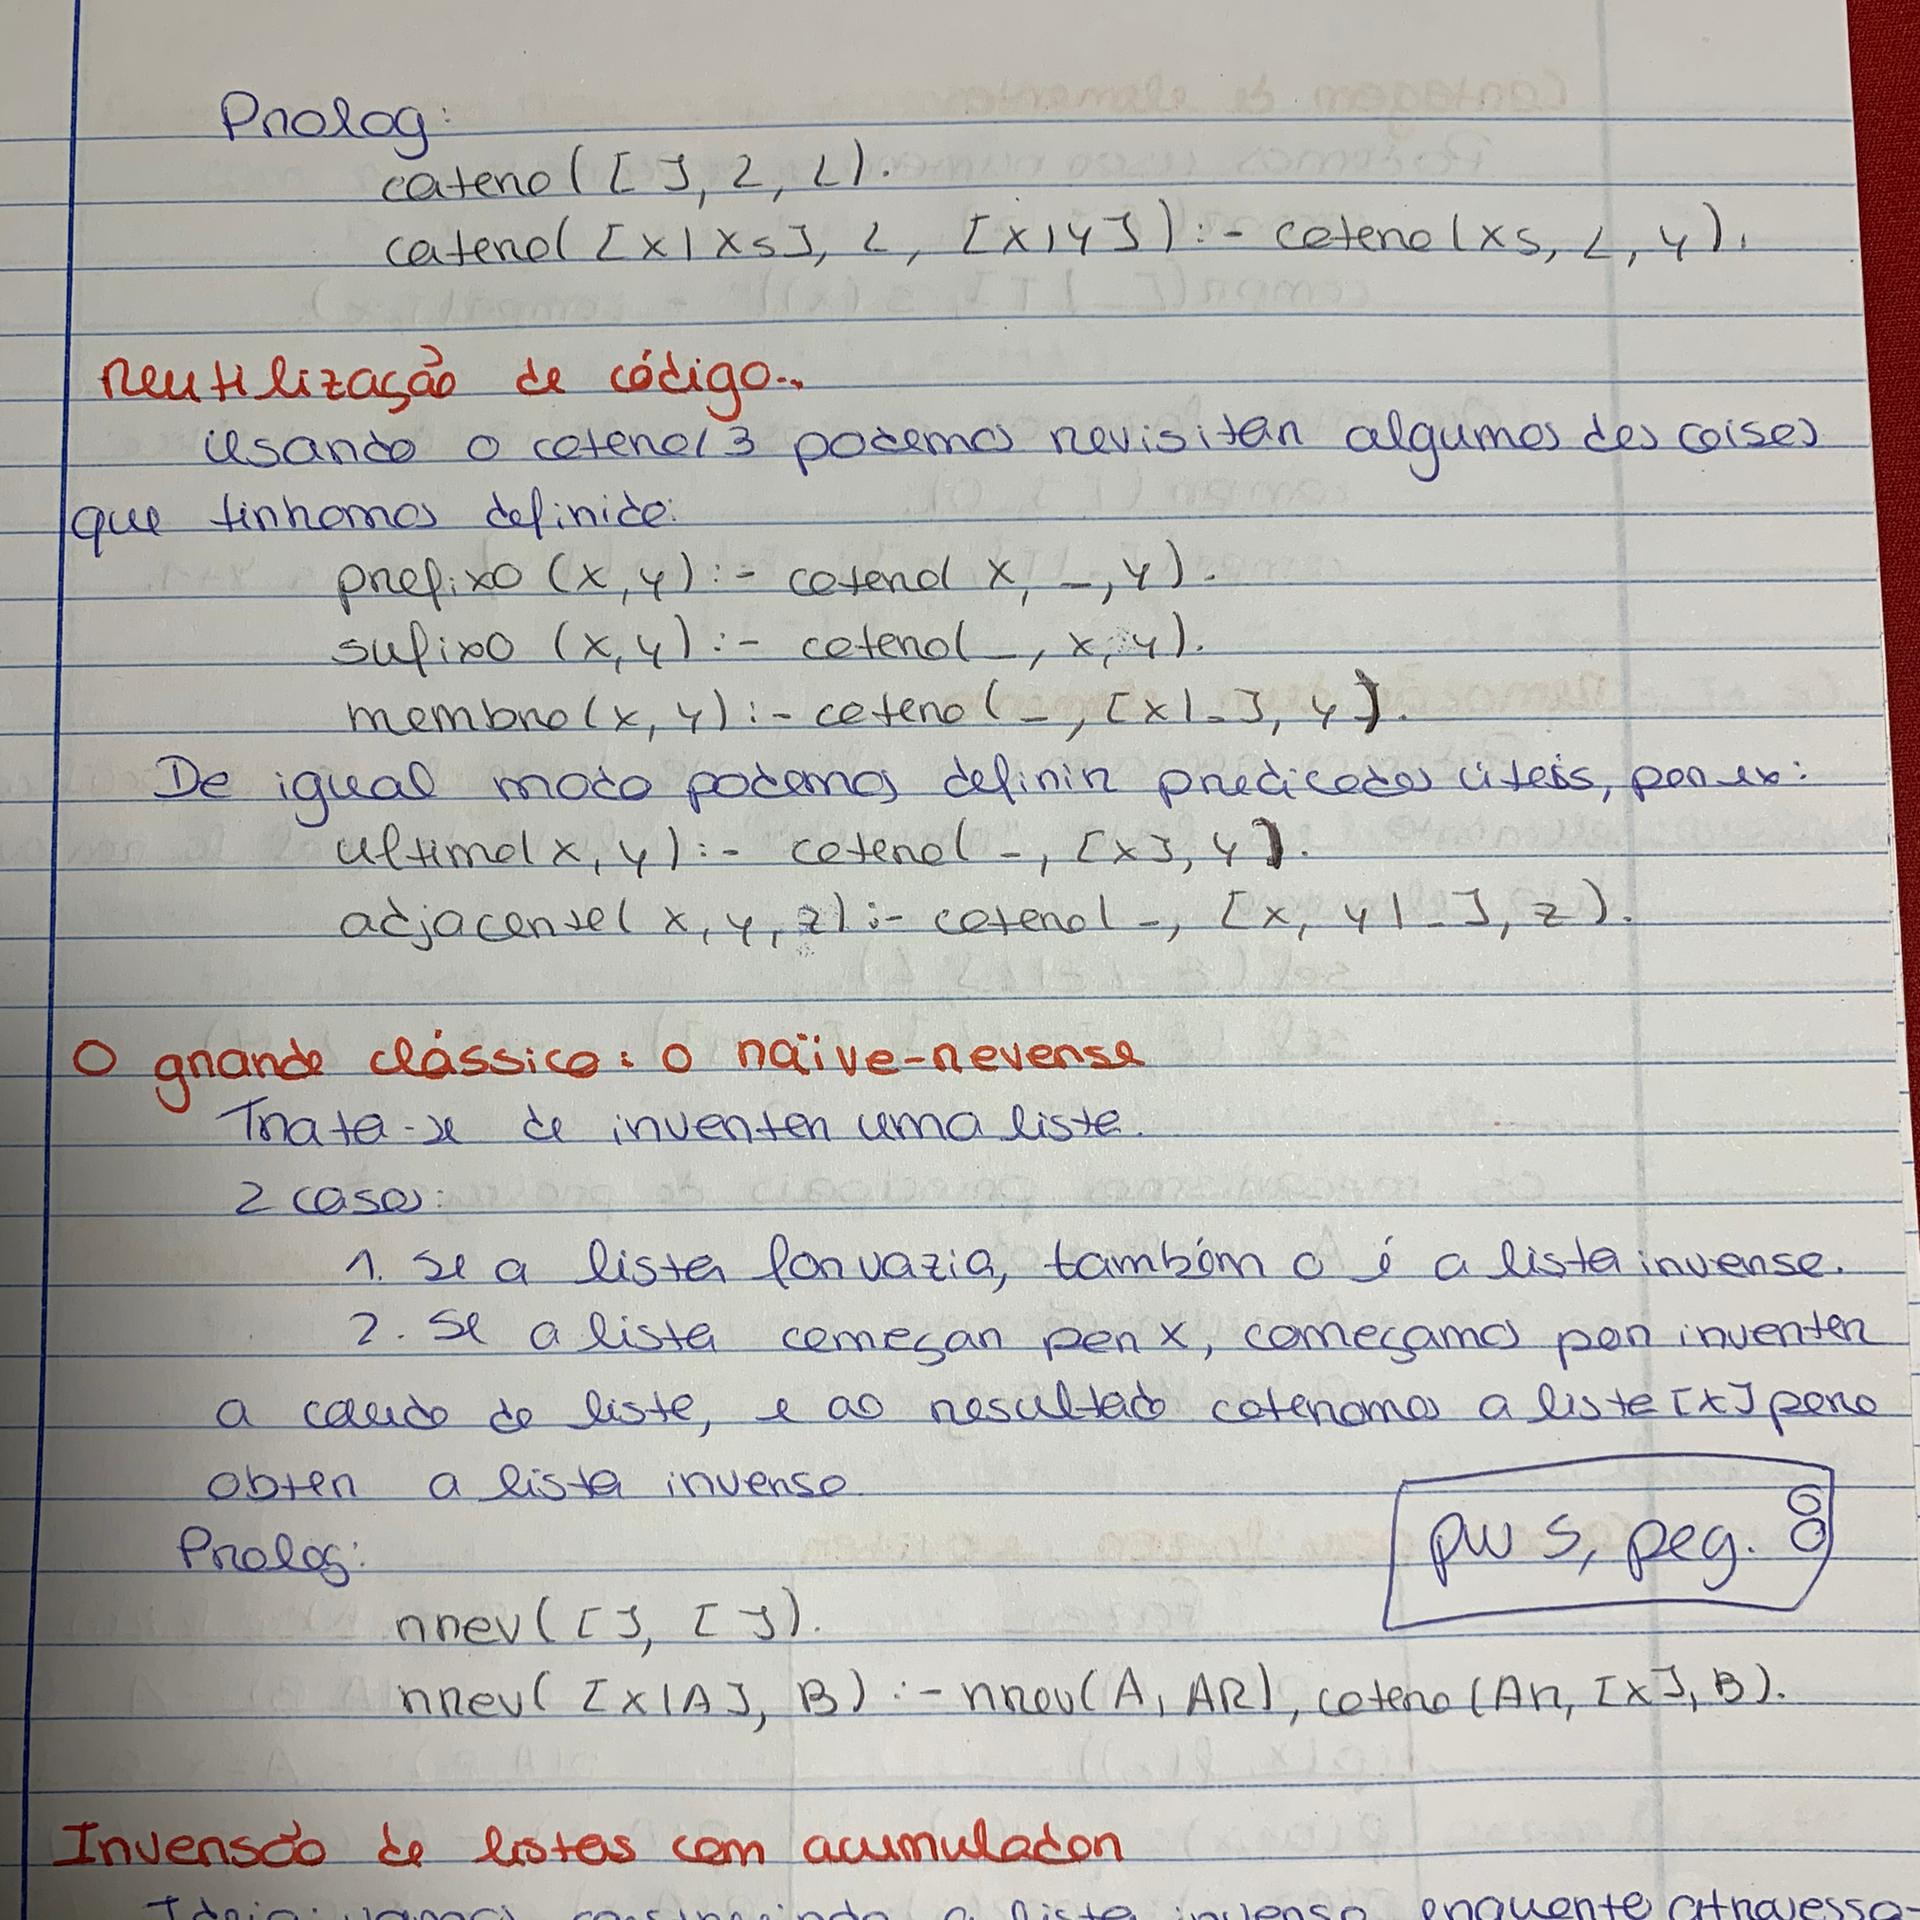 Prolog:
catena([ ], L, L).
catena([X|Xs], L, [X|Y]) :- catena(Xs, L, Y).
Reutilização de código..
Usando o catena/3 podemos revisitar algumas das coisas
que tinhamos definido:
prefixo (X, Y) :- catena( X, _, Y).
sufixo (X, Y) :- catena( _, X, Y).
membro(X, Y) :- catena( _, [X|_], Y).
De igual modo podemos definir predicados úteis, por ex:
ultimo(X, Y) :- catena( _, [X], Y).
adjacente( X, Y, Z) :- catena( _, [X, Y|_], Z).
O grande clássico: o naïve-reverse
Trata-se de inverter uma lista.
2 casos:
1. Se a lista for vazia, também o é a lista inversa.
2. Se a lista começar por X, começamos por inverter
a cauda da lista, e ao resultado catenamos a lista [X] para
obter a lista inversa
pw s, pag. 68
Prolog:
nrev([ ], [ ]).
nrev( [X|A], B) :- nrev(A, AR), catena(AR, [X], B).
Inversão de listas com acumulador
Ideia: vamos construindo a lista inversa enquanto atravessa-